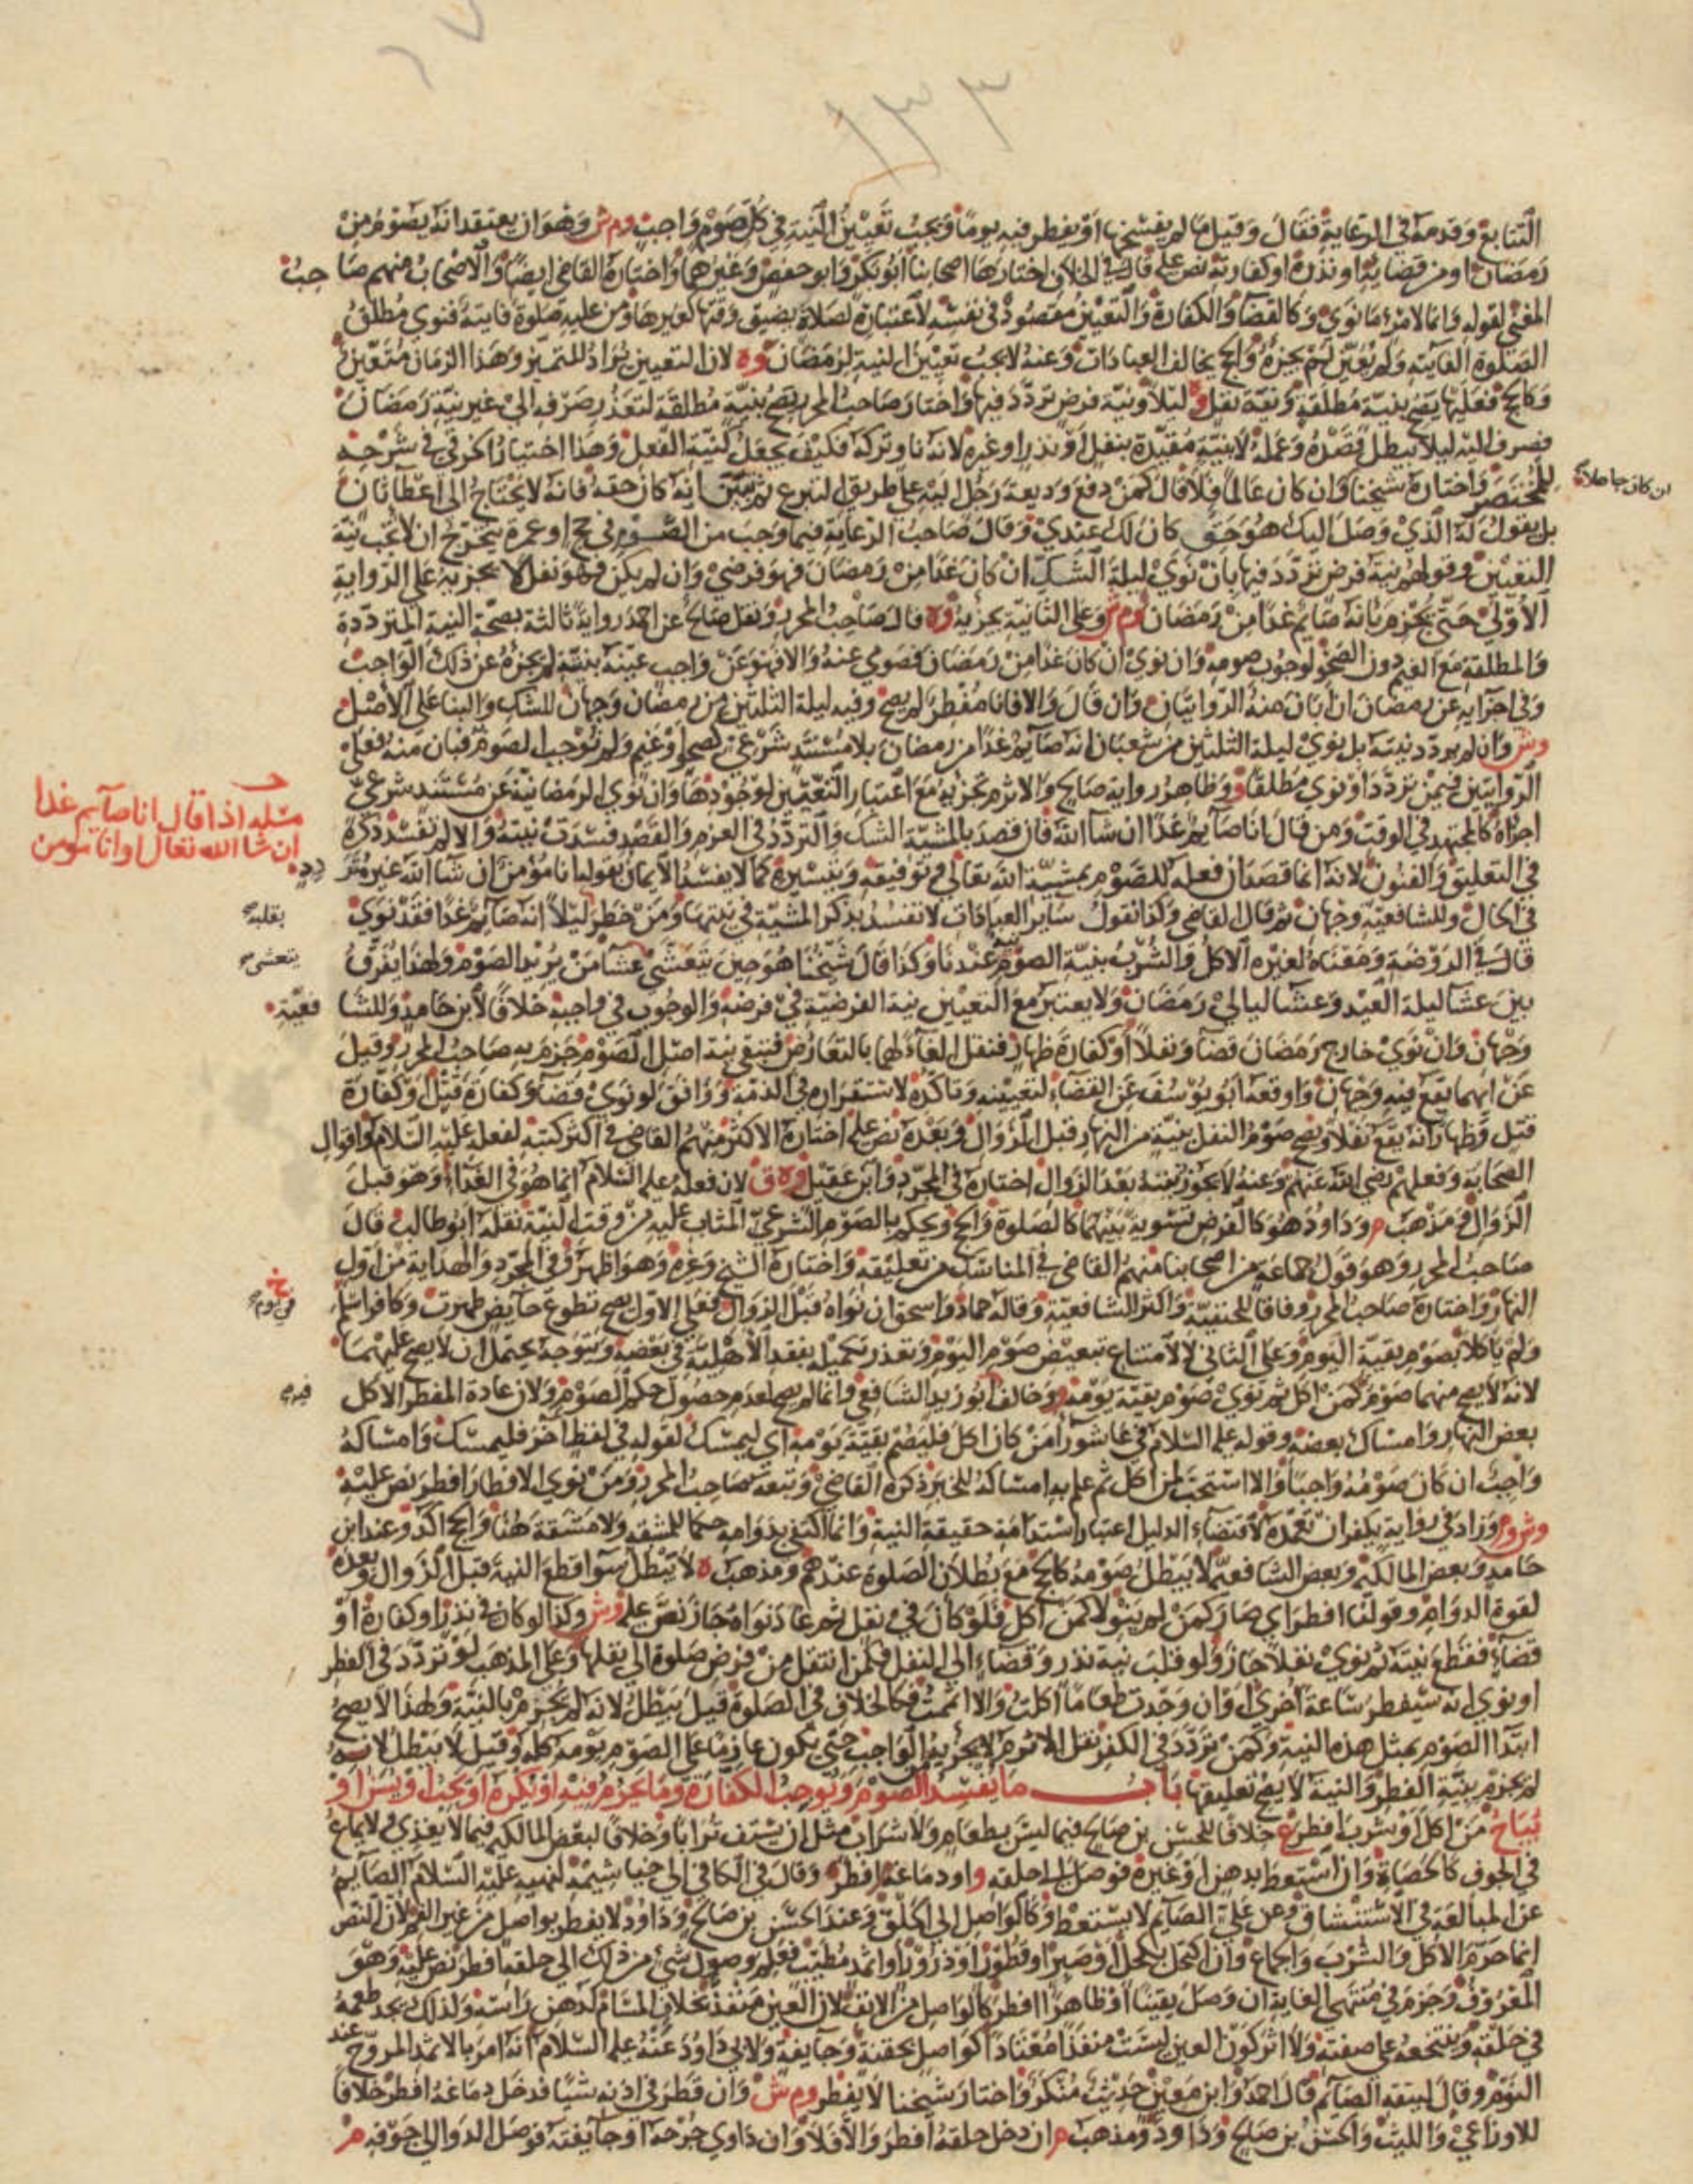 ١٣٣
التتابع وقدمه في الرعاية فقال وقيل ما لم يفسخها او يفطر فيه يوما ويجب تعيين النية في كل صوم واجب وم ش وهو ان يعتقد انه يصوم من
رمضان او من قضائه او نذره او كفارته نص عليه قال في الخلاف اختارها اصحابنا ابو بكر وابو حفص وغيرهما واختاره القاضي ايضا والاصحاب منهم صاحب
المغني لقوله وانما لامرئ ما نوى وكالقضا والكفارة والتعيين مقصود في نفسه لاعتباره لصلاة يضيق وقتها كغيرها ومن عليه صلوة فايتة فنوى مطلق
الصلوة الفايتة ولم يعين لم يجزه والحج يخالف العبادات وعنه لا يجب تعيين النية لرمضان وه لان التعيين يراد للتمييز وهذا الزمان متعين
وكالحج فعليها يصح بنية مطلقة ونية نفل وليلا ونية فرض تردد فيها واختار صاحب المحرر يصح بنية مطلقة لتعذر صرفه الى غير نية رمضان
فصرف اليه ليلا يبطل قصده وعمله لا بنية مقيدة بنفل او نذر او غيره لانه ناو تركه فكيف يجعل كنية الفعل وهذا اختيار الخرقي في شرحه
للمختصر واختاره شيخنا وان كان عالما فلا قال كمن دفع وديعة رجل اليه على طريق التبرع ثم تبين انه كان حقه فانه لا يحتاج الى اعطا ثان
ان كان جاهلا
بل يقول له الذي وصل اليك هو حق كان لك عندي وقال صاحب الرعاية فيما وجب من الصوم في حج او عمرة يتخرج ان لا تجب نية
التعيين وقولهم نية فرض تردد فيها بان نوى ليلة الشك ان كان غدا من رمضان فهو فرضي وان لم يكن فهو نفل لا يجزيه على الرواية
الاولى حتى يجزم بانه صايم غدا من رمضان وم ش وعلى الثانية يجزيه وه قال صاحب المحرر ونقل صالح عن احمد رواية ثالثة بصحة النية المترددة
والمطلقة مع الغيم دون الصحو لوجوب صومه وان نوى ان كان غدا من رمضان فصومي عنه والا فهو عن واجب عينه بنيته لم يجزه عن ذلك الواجب
وفي اجزايه عن رمضان ان ابان منه الروايتان وان قال والا فانا مفطر لم يصح وفيه ليلة الثلثين من رمضان وجهان للشك والبنا على الاصل
وش وان لم يردد نيته بل نوى ليلة الثلثين من شعبان انه صايم غدا من رمضان بلا مستند شرعي كصحو او غيم ولم نوجب الصوم فبان منه فعلى
الروايتين فيمن تردد او نوى مطلقا و وظاهر رواية صالح والاثرم تجزيه مع اعتبار التعيين لوجودها وان نوى الرمضانية عن مستند شرعي
اجزاه كالمجتهد في الوقت ومن قال انا صايم غدا ان شا الله فان قصد بالمشية الشك والتردد في العزم والقصد فسدت نيته والا لم تفسد ذكره
مسله اذا قال انا صايم غدا
ان شا الله تعال او انا مومن
في التعليق والفنون لانه انما قصد ان فعله للصوم بمشية الله تعالى في توفيقه وتيسيره كما لا يفسد الايمان بقوله انا مؤمن ان شا الله غير متردد
في الحال وللشافعية وجهان ثم قال القاضي وكذا نقول ساير العبادات لا تفسد بذكر المشية في نيتها ومن خطر ليلا انه صايم غدا فقد نوى
بقلبه
قال في الروضة ومعناه لغيره الاكل والشرب بنية الصوم عندنا وكذا قال شيخنا هو حين يتعشى عشا من يريد الصوم ولهذا يفرق
يتعشى
بين عشا ليلة العيد وعشا ليالي رمضان ولا يعتبر مع التعيين نية الفرضية في فرضه والوجوب في واجبه خلافا لابن حامد وللشافعية
وجهان وان نوى خارج رمضان قضا ونفلا او كفارة ظهار فنفل الغاء لهما بالتعارض فتبقى نية اصل الصوم جزم به صاحب المحرر وقيل
عن ايهما يقع فيه وجهان واوقعه ابو يوسف عن القضاء لتعيينه وتاكده لاستقراره في الذمة ووافق لو نوى قضا وكفارة قتل او كفارة
قتل وظهار انه يقع نفلا ويصح صوم النفل بنية من النهار قبل الزوال وبعده نص عليه اختاره الاكثر منهم القاضي في اكثر كتبه لفعله عليه السلام واقوال
الصحابة وفعلهم رضي الله عنهم وعنه لا يجوز بنية بعد الزوال اختاره في المجرد وابن عقيل وه ق لان فعله عليه السلام انما هو في الغداء وهو قبل
الزوال ومذهب م وداود هو كالفرض تسوية بينهما كالصلوة والحج ويحكم بالصوم الشرعي المثاب عليه من وقت النية نقله ابو طالب قال
صاحب المحرر وهو قول جماعة من اصحابنا منهم القاضي في المناسك من تعليقه واختاره الشيخ وغيره وهو اظهر وفي المجرد والهداية من اول
النهار واختاره صاحب المحرر وفاقا للحنفية واكثر الشافعية وقاله حماد واسحق ان نواه قبل الزوال فعلى الاول يصح تطوع حايض طهرت وكافر اسلم
في يوم خ
ولم ياكلا بصوم بقية اليوم وعلى الثاني لا لامتناع تبعيض صوم اليوم وتعذر تكميله بفقد الاهلية في بعضه ويتوجه يحتمل ان لا يصح عليهما
لانه لا يصح منهما صوم كمن اكل ثم نوى صوم بقية يومه و وخالف ابو زيد الشافعي وانما لم يصح لعدم حصول حكم الصوم ولان عادة المفطر الاكل
فيه
بعض النهار وامساك بعضه وقوله عليه السلام في عاشورا من كان اكل فليصم بقية يومه اي ليمسك لقوله في لفظ اخر فليمسك وامساكه
واجب ان كان صومه واجبا والا استحب لمن اكل ثم علم به امساكه للخبر ذكره القاضي وتبعه صاحب المحرر ومن نوى الافطار افطر نص عليه
وش وم وزاد في رواية يكفر ان تعمده لاقتضاء الدليل اعتبار استدامة حقيقة النية وانما اكتفي بدوامه حكما للمشقة ولا مشقة هنا والحج اكد وعند ابن
حامد وبعض المالكية وبعض الشافعية لا يبطل صومه كالحج مع بطلان الصلوة عندهم ومذهب ه لا تبطل سوا قطع النية قبل الزوال وبعده
لقوة الدوام وقولنا افطر اي صار كمن لم ينو لا كمن اكل فلو كان في نفل ثم عاد نواه جاز نص عليه وش وكذا لو كان في نذر او كفارة او
قضاء فقطع نيته ثم نوى نفلا جاز ولو قلب نية نذر وقضاء الى النفل فكمن انتقل من فرض صلوة الى نفلها وعلى المذهب لو تردد في الفطر
او نوى انه سيفطر ساعة اخرى او ان وجدت طعاما اكلت والا اتممت فكالخلاف في الصلوة قيل يبطل لانه لم يجزم بالنية ولهذا لا يصح
ابتدا الصوم بمثل هذه النية وكمن تردد في الكفر نقل الاثرم لا يجزيه الواجب حتى يكون عازما على الصوم يومه كله وقيل لا يبطل لانه
لم يجزم بنية الفطر والنية لا يصح تعليقها باب ما يفسد الصوم ويوجب الكفارة وما يحرم فيه او يكره او يجب او يسن او
يباح من اكل او شرب افطر ع خلافا للحسن بن صالح فيما ليس بطعام ولا شراب مثل ان يستف ترابا وخلافا لبعض المالكية فيما لا يغذي ولا يماع
في الجوف كالحصاة وان استعط بدهن او غيره فوصل الى حلقه و او دماغه افطر وقال في الكافي الى خياشيمه لنهيه عليه السلام الصايم
عن المبالغة في الاستنشاق وعن علي الصايم لا يستعط وكالواصل الى الحلق وعند الحسن بن صالح وداود لا يفطر بواصل من غير الفم لان النص
انما حرم الاكل والشرب والجماع وان اكتحل بكحل او صبر او قطور او ذرور او اثمد مطيب فعلم وصول شئ من ذلك الى حلقه افطر نص عليه وهو
المعروف وجزم في منتهى الغاية ان وصل يقينا او ظاهرا افطر كالواصل من الانف لان العين منفذ بخلاف المسام كدهن راسه ولذلك يجد طعمه
في حلقه ويتنخعه على صفته ولا اثر كون العين ليست منفذا معتادا كواصل بحقنة وجايفة ولابي داود عنه عليه السلام انه امر بالاثمد المروح عند
النوم وقال ليتقه الصايم قال احمد وابن معين حديث منكر واختار شيخنا لا يفطر وم ش وان قطر في اذنه شيا فدخل دماغه افطر خلافا
للاوزاعي والليث والحسن بن صالح وداود ومذهب م ان دخل حلقه افطر والا فلا وان داوى جرحه او جايفته فوصل الدوا الى جوفه م